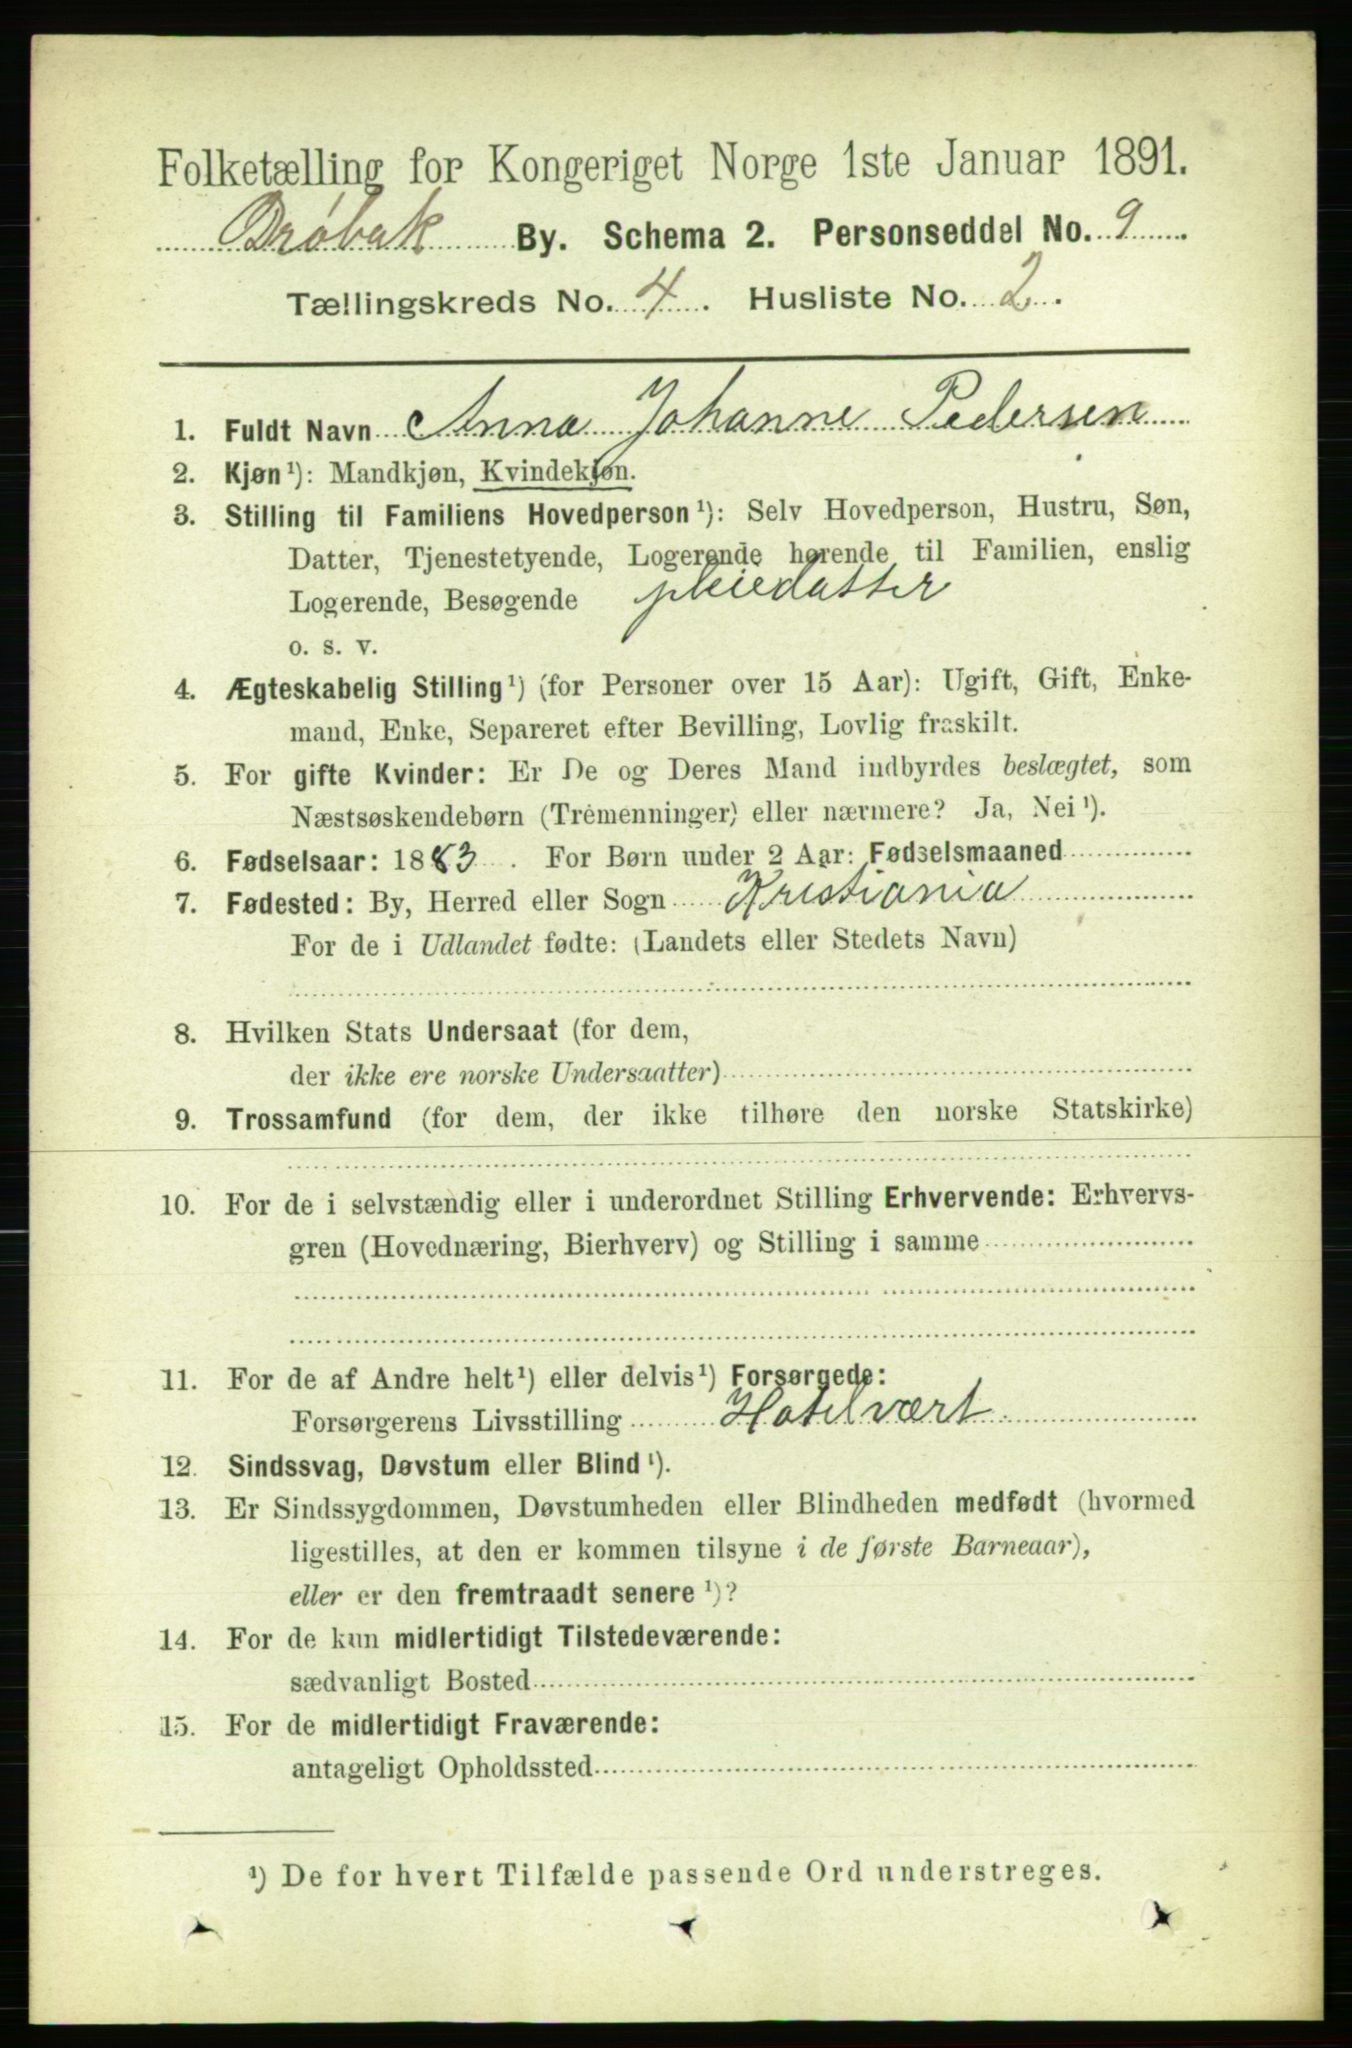 Folketælling for Kongeriget Norge 1ste Januar 1891.
Drøbak By. Schema 2. Personseddel No. 9
Tællingskreds No. 4. Husliste No. 2.
1. Fuldt Navn Anna Johanne Pedersen
2. Kjøn¹): Mandkjøn, Kvindekjøn.
3. Stilling til Familiens Hovedperson¹): Selv Hovedperson, Hustru, Søn,
Datter, Tjenestetyende, Logerende hørende til Familien, enslig
Logerende, Besøgende pleiedatter
o. s. v.
4. Ægteskabelig Stilling¹) (for Personer over 15 Aar): Ugift, Gift, Enke-
mand, Enke, Separeret efter Bevilling, Lovlig fraskilt.
5. For gifte Kvinder: Er De og Deres Mand indbyrdes beslægtet, som
Næstsøskendebørn (Tremenninger) eller nærmere? Ja, Nei¹).
6. Fødselsaar: 1883. For Børn under 2 Aar: Fødselsmaaned
7. Fødested: By, Herred eller Sogn Kristiania
For de i Udlandet fødte: (Landets eller Stedets Navn)
8. Hvilken Stats Undersaat (for dem,
der ikke ere norske Undersaatter)
9. Trossamfund (for dem, der ikke tilhøre den norske Statskirke)
10. For de i selvstændig eller i underordnet Stilling Erhvervende: Erhvervs-
gren (Hovednæring, Bierhverv) og Stilling i samme
11. For de af Andre helt¹) eller delvis¹) Forsørgede:
Forsørgerens Livsstilling Hotelvært
12. Sindssvag, Døvstum eller Blind¹).
13. Er Sindssygdommen, Døvstumheden eller Blindheden medfødt (hvormed
ligestilles, at den er kommen tilsyne i de første Barneaar),
eller er den fremtraadt senere¹)?
14. For de kun midlertidigt Tilstedeværende:
sædvanligt Bosted
15. For de midlertidigt Fraværende:
antageligt Opholdssted
¹) De for hvert Tilfælde passende Ord understreges.